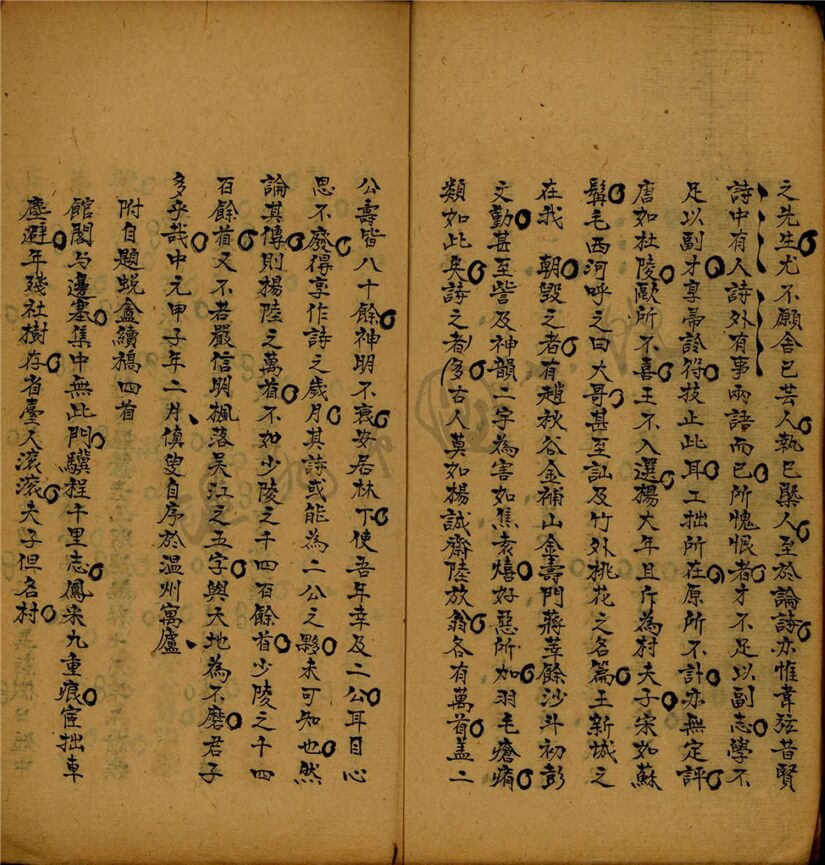 之先生尤不願舍己芸人執己槩人至於論詩亦惟韋弦昔賢
詩中有人詩外有事兩語而已所愧恨者才不足以副志學不
足以副才享帚詅符技止此耳工拙所在原所不計亦無定評
唐如杜陵歐所不喜王不入選楊大年且斥為村夫子宋如蘇
髯毛西河呼之曰大哥甚至訕及竹外桃花之名篇王新城之
在我 朝毀之者有趙秋谷金補山金壽門蔣莘餘沙斗初彭
文勤甚至訾及神韻二字為害如焦袁熺好惡所如羽毛瘡痏
類如此矣詩之者多古人莫如楊誠齋陸放翁各有萬首盖二
公壽皆八十餘神明不衰安居林下使吾年幸及二公耳目心
思不廢得享作詩之歲月其詩或能為二公之夥未可知也然
論其傳則楊陸之萬首不如少陵之千四百餘首少陵之千四
百餘首又不若嚴信明楓落吳江之五字與天地為不磨君子
多乎哉中元甲子年二月偵叟自序於温州寓廬
附自題蜕盦續稿四首
館閣与邊塞集中無此門驥程千里志鳳采九重痕宦拙車
塵避年殘社樹存省臺人滚滚夫子但名村